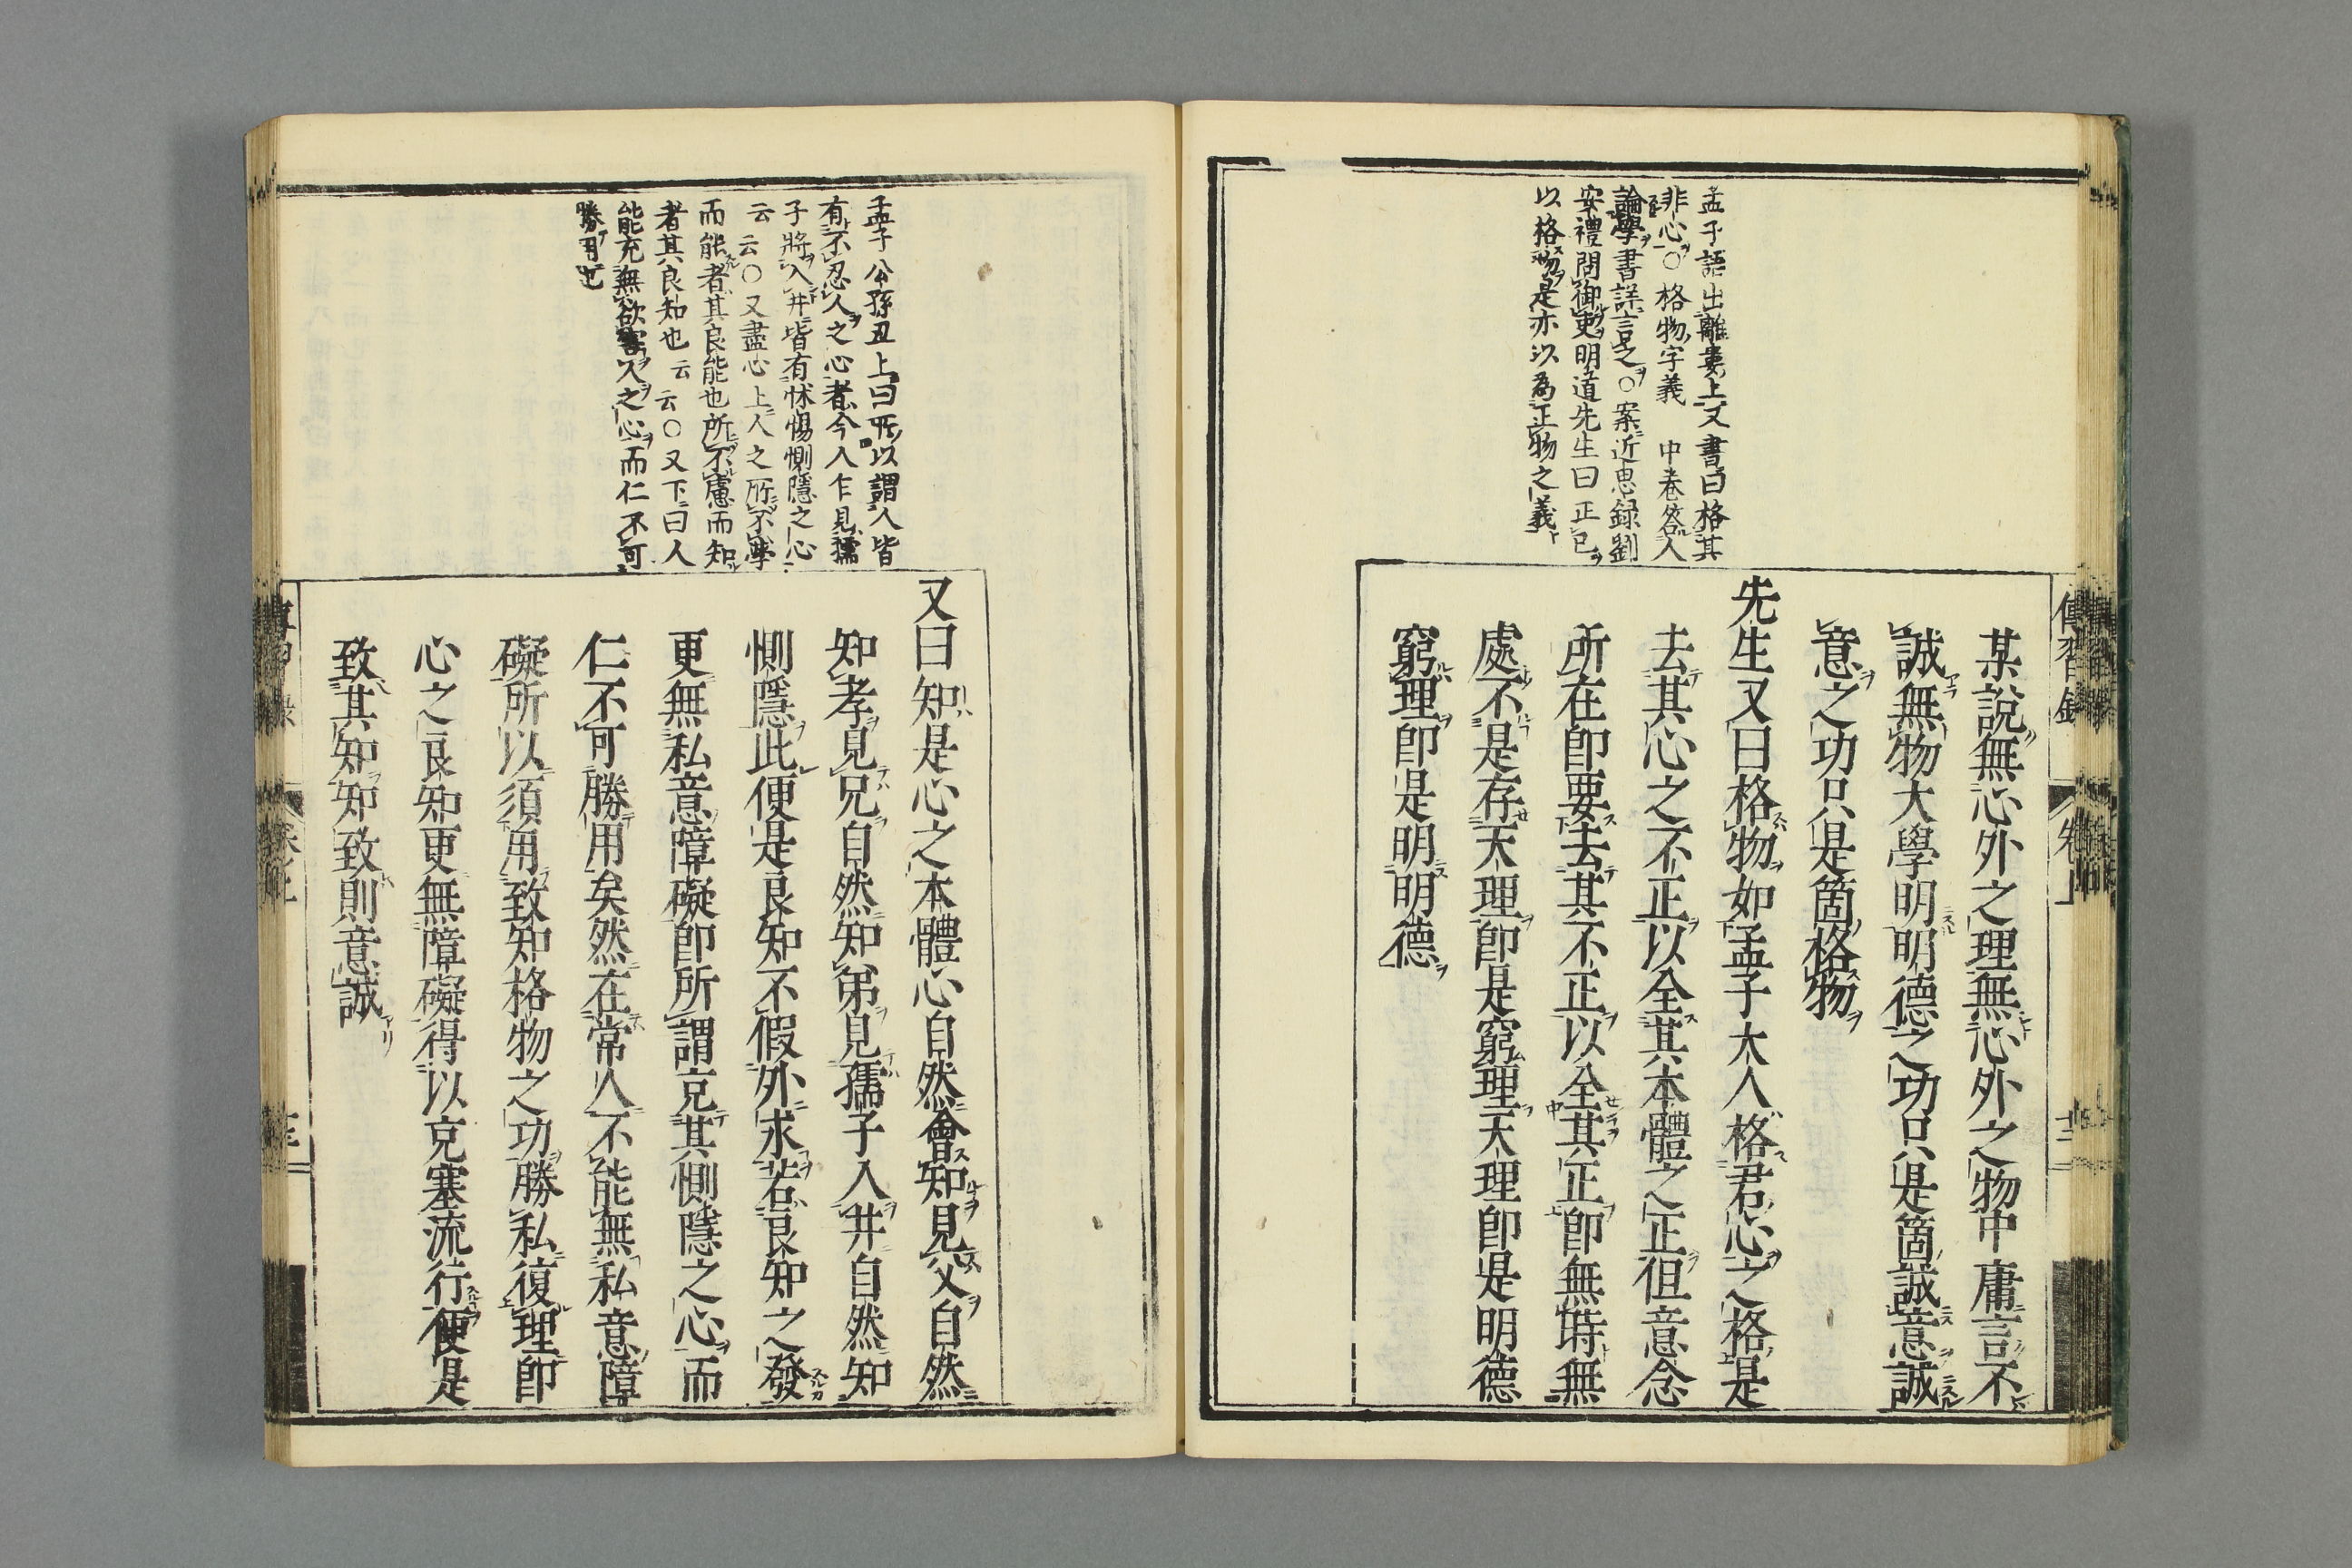 孟子語出離婁上又書曰格其
非心○格物字義 中卷答人
論學書詳言之○案近思録劉
安禮問御吏明道先生曰正己
以格物是亦以為正物之義
某說無心外之理無心外之物中庸言不
誠無物大學明明德之功只是箇誠意誠
意之功只是箇格物
先生又曰格物如孟子大人格君心之格是
去其心之不正以全其本體之正但意念
所在卽要去其不正以全其正卽無時無
處不是存天理卽是窮理天理卽是明德
窮理卽是明明德
傳習錄
卷上
十二
孟子公孫丑上曰所以謂人皆
有不忍人之心者今人乍見孺
子將入井皆有怵惕惻隱之心
云云○又盡心上人之所不學
而能者其良能也所不慮而知
者其良知也云云○又下曰人
能充無欲害人之心而仁不可
勝用也
又曰知是心之本體心自然會知見父自然
知孝見兄自然知弟見孺子入井自然知
惻隱此便是良知不假外求若良知之發
更無私意障礙卽所謂充其惻隱之心而
仁不可勝用矣然在常人不能無私意障
礙所以須用致知格物之功勝私復理卽
心之良知更無障礙得以充塞流行便是
致其知知致則意誠